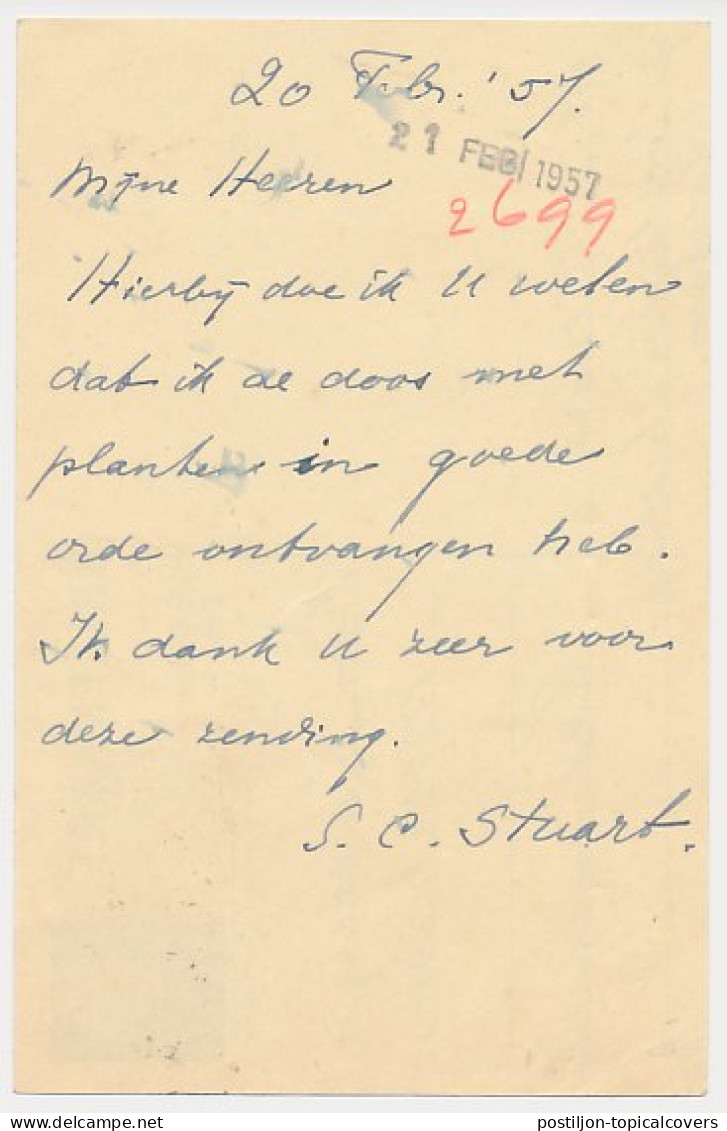 20 Febr. '57.
21 FEB 1957
Mijne Heeren
2699
Hierbij doe ik U weten
dat ik de doos met
planten in goede
orde ontvangen heb.
Ik dank U zeer voor
deze zending.
S. C. Stuart.
postiljon-topicalcovers